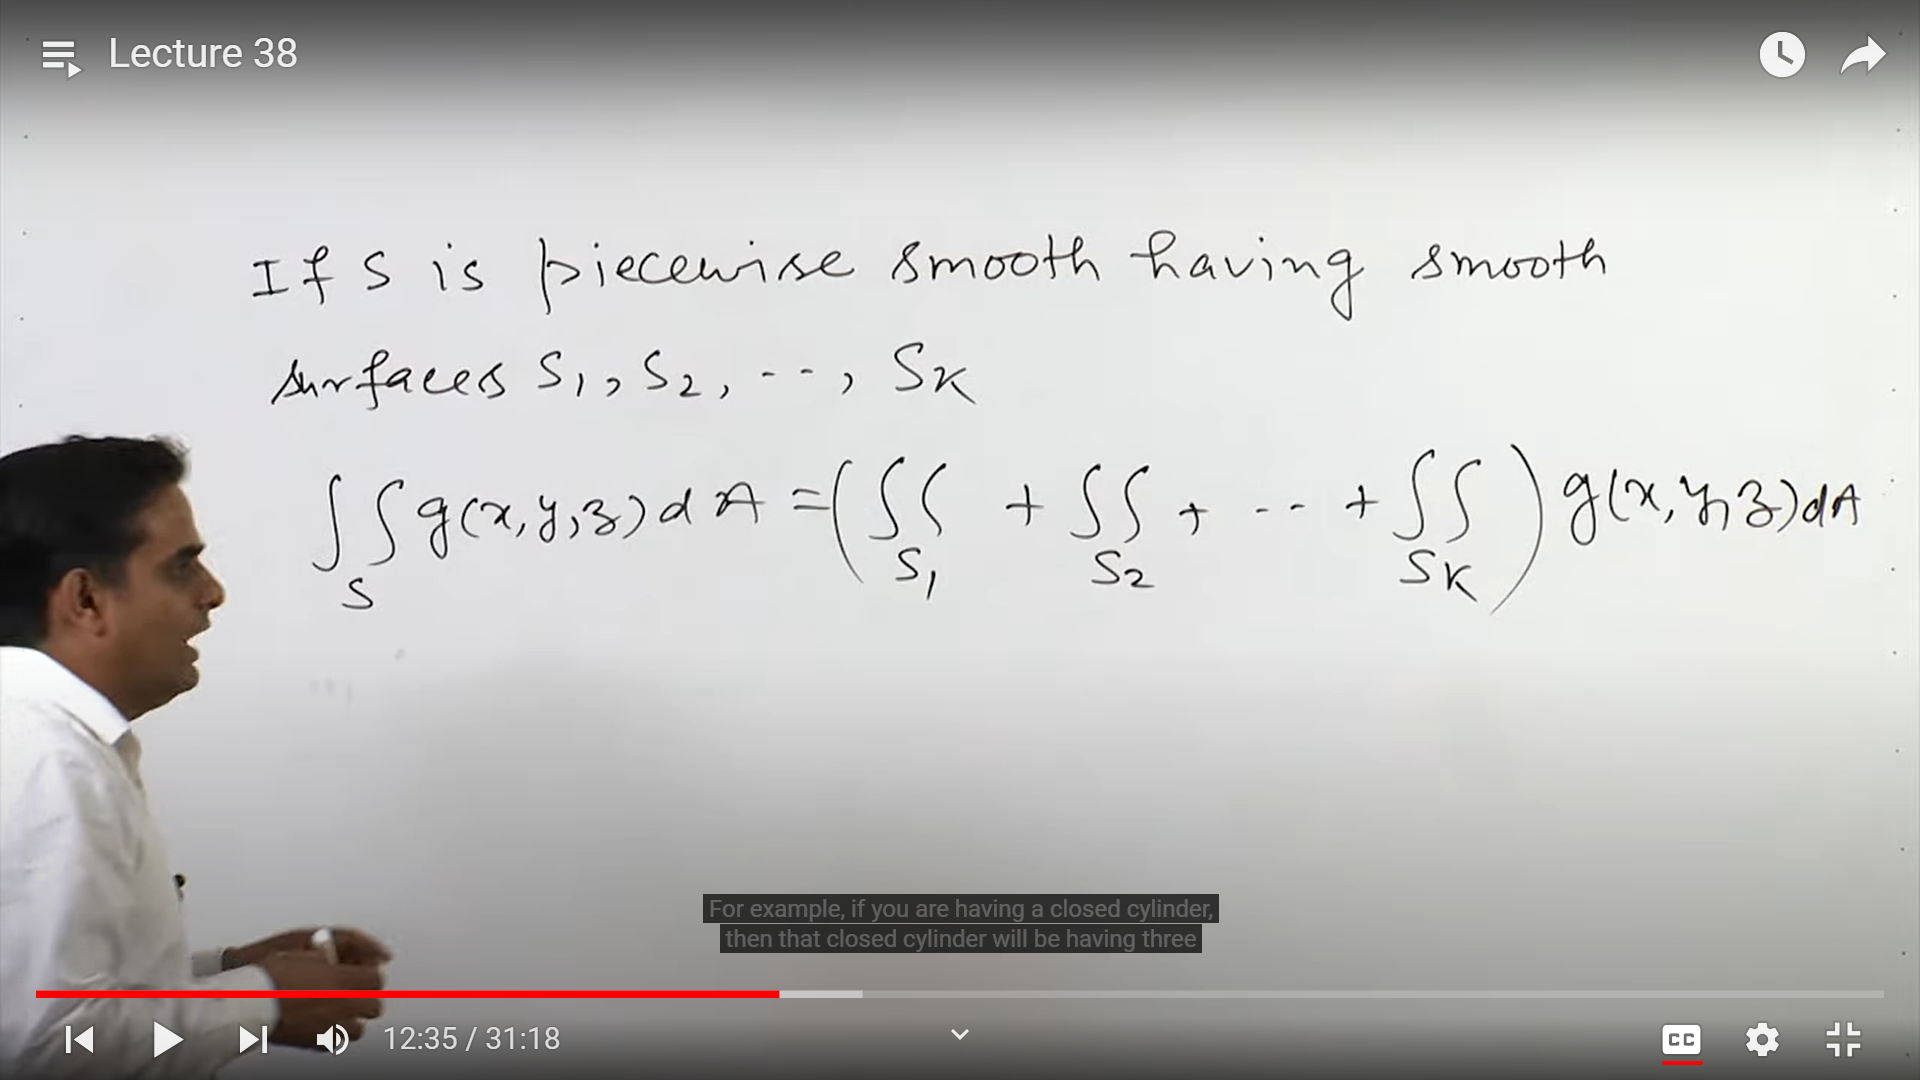 Lecture 38
If S is piecewise smooth having smooth
surfaces S₁, S₂, ---, Sₖ
∫∫_S g(x,y,z)dA = (∫∫_S₁ + ∫∫_S₂ + --- + ∫∫_Sₖ) g(x,y,z)dA
For example, if you are having a closed cylinder,
then that closed cylinder will be having three
12:35 / 31:18
CC